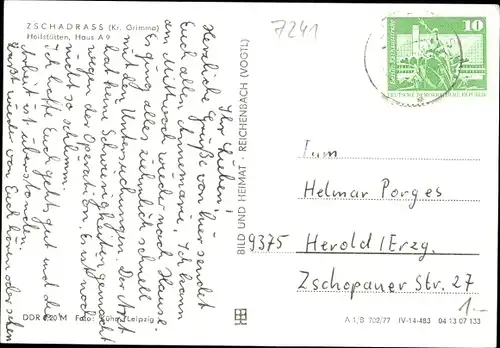 ZSCHADRASS (Kr. Grimma)
Heilstätten, Haus A 9
7241
10
DEUTSCHE DEMOKRATISCHE REPUBLIK
Ihr Lieben!
Herzliche Grüße von hier sendet
Euch allen Annemarie. Ich kann
am Mittwoch wieder nach Hause.
Es ging alles ziemlich schnell
mit den Untersuchungen. Der Arzt
hat keine Schwierigkeiten gemacht
wegen der Operation. Es ist noch
nicht so schlimm.
Ich hoffe Euch geht's gut und die
Arbeit ist überstanden.
werden von Euch hören oder sehen
BILD UND HEIMAT · REICHENBACH (VOGTL)
Fam.
Helmar Porges
9375 Herold/Erzg.
Zschopauer Str. 27
1.-
DDR 0,20 M Foto: Kühn, Leipzig
A 1/B 702/77 IV-14-483 04 13 07 133